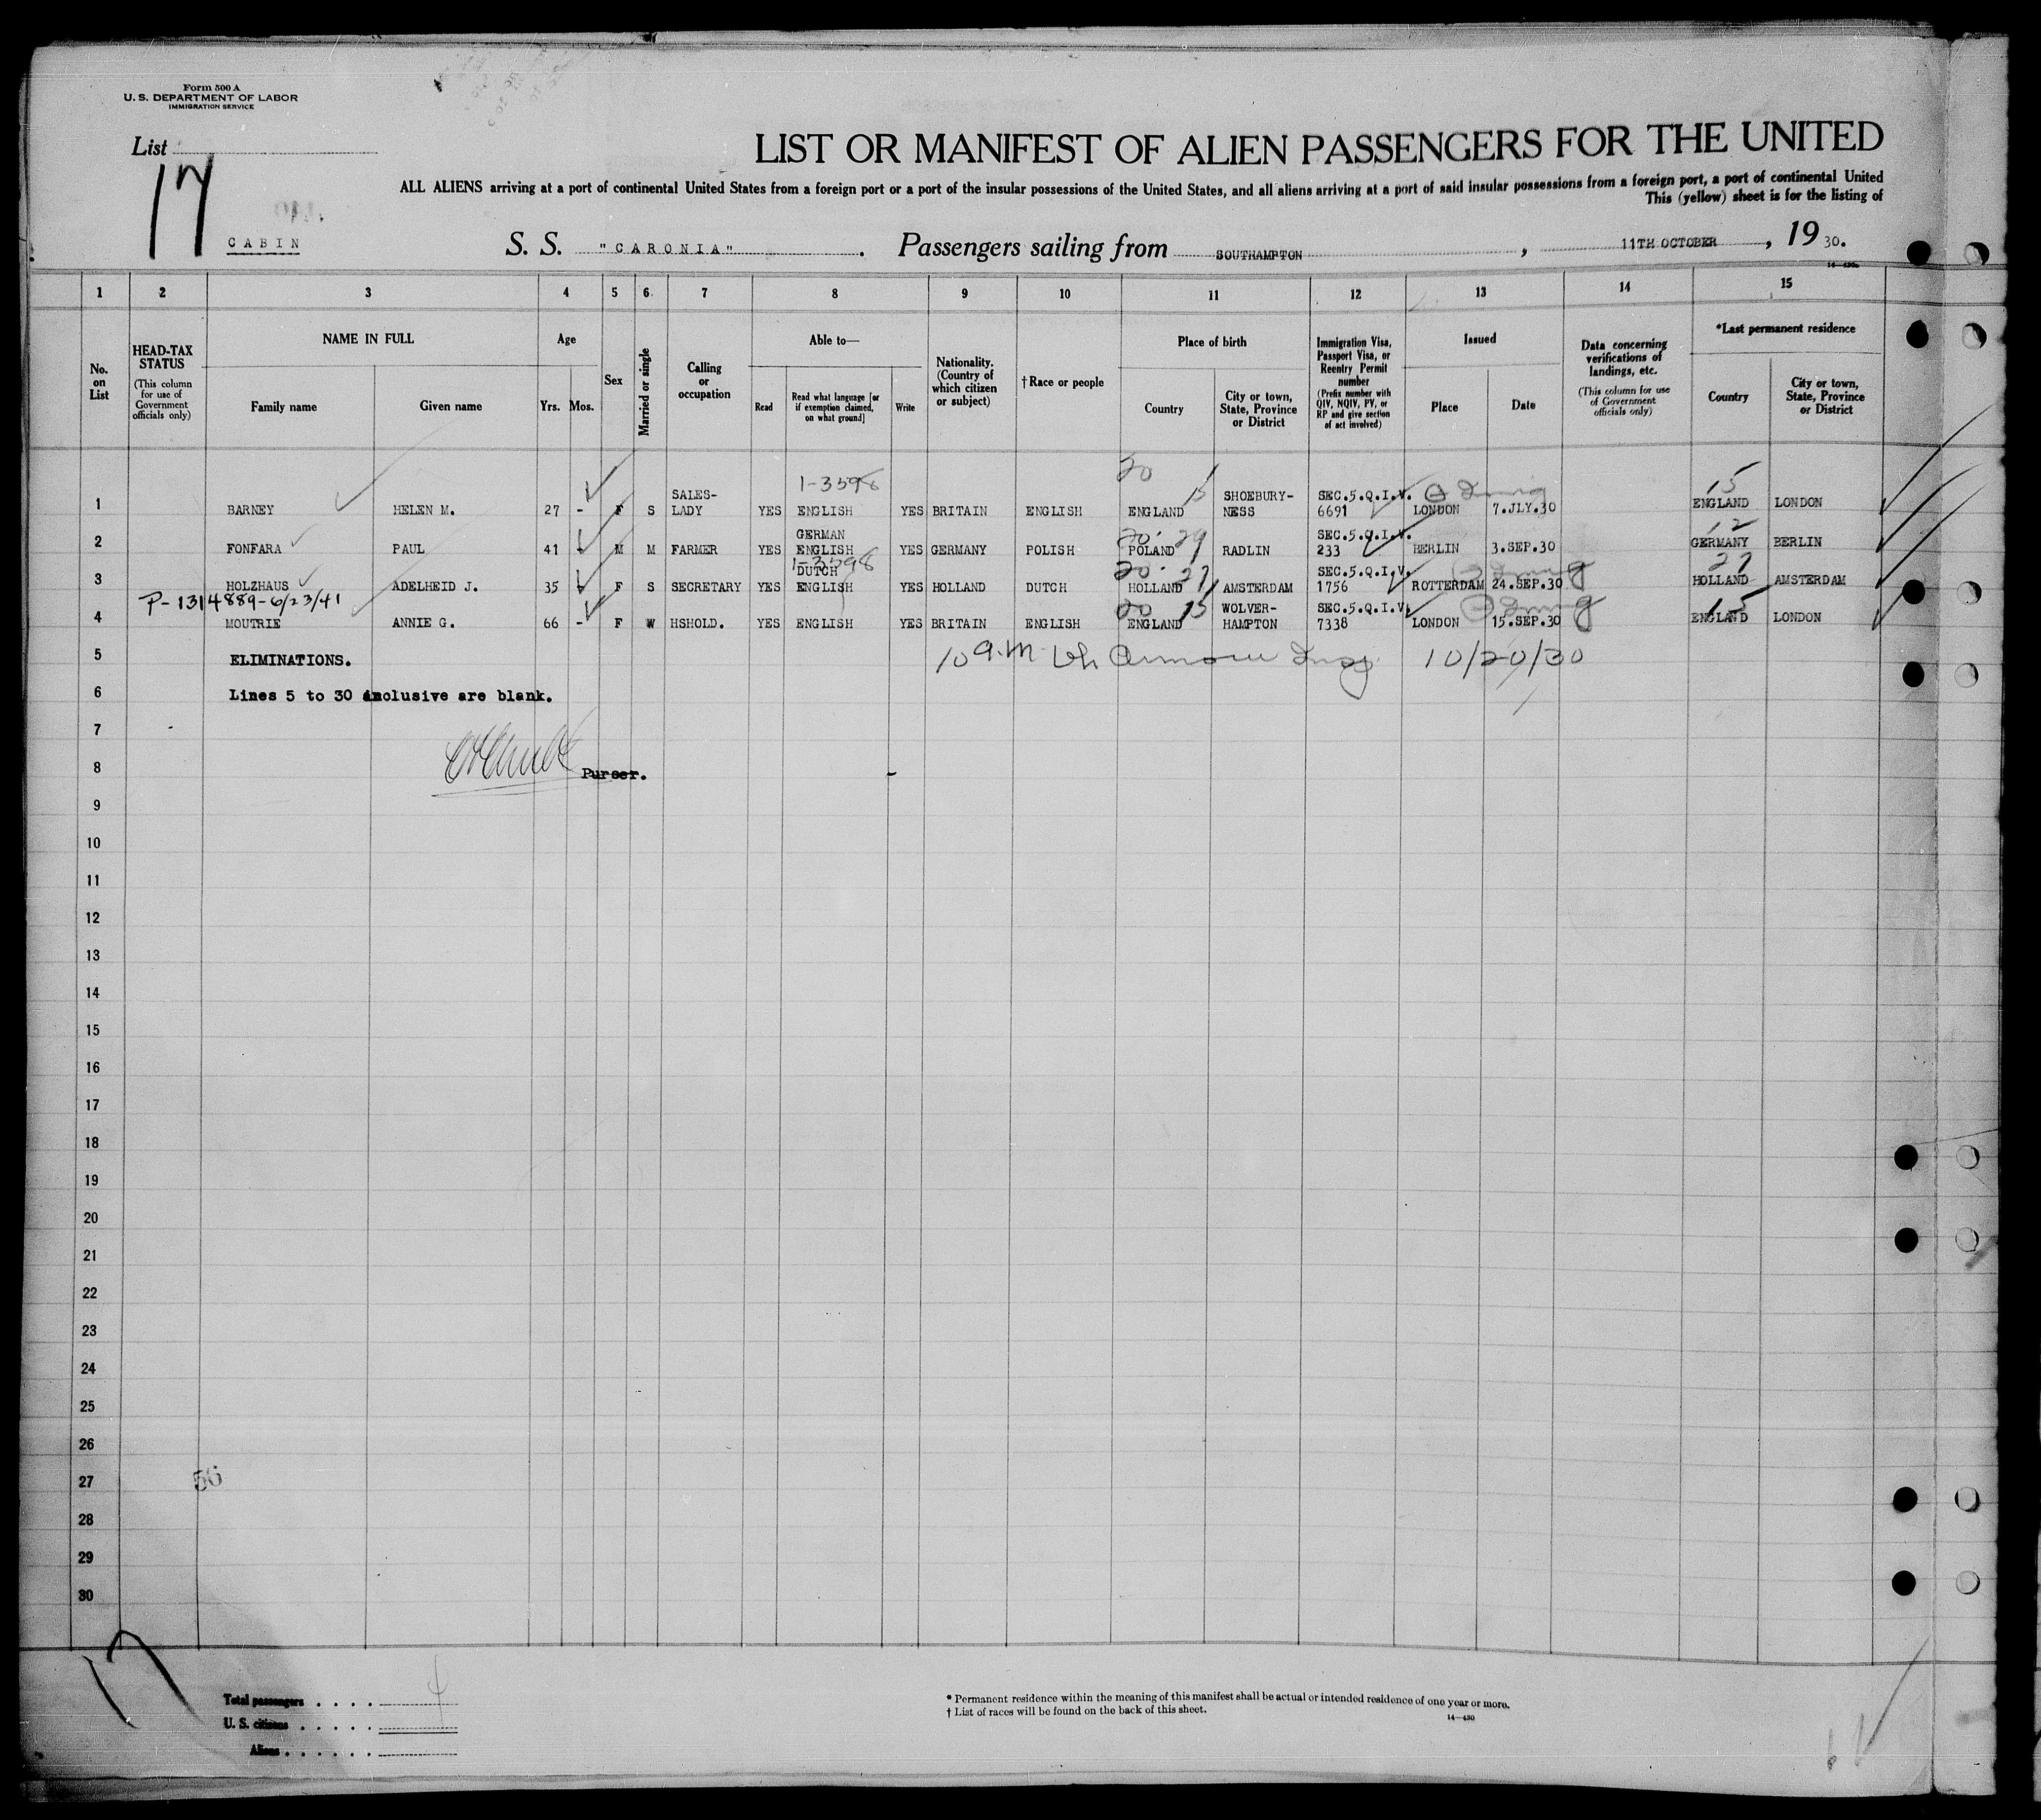 Form 500 A
U. S. DEPARTMENT OF LABOR
IMMIGRATION SERVICE
List
17
LIST OR MANIFEST OF ALIEN PASSENGERS FOR THE UNITED
ALL ALIENS arriving at a port of continental United States from a foreign port or a port of the insular possessions of the United States, and all aliens arriving at a port of said insular possessions from a foreign port, a port of continental United
This (yellow) sheet is for the listing of
CABIN S. S. "CARONIA". Passengers sailing from SOUTHAMPTON, 11TH OCTOBER, 19 30.
1 2 3 4 5 6 7 8 9 10 11 12 13 14 15
No. on List
HEAD-TAX STATUS
(This column for use of Government officials only)
NAME IN FULL
Family name Given name
Age
Yrs. Mos.
Sex
Married or single
Calling or occupation
Able to—
Read
Read what language [or if exemption claimed, on what ground]
Write
Nationality. (Country of which citizen or subject)
†Race or people
Place of birth
Country
City or town, State, Province or District
Immigration Visa, Passport Visa, or Reentry Permit number
(Prefix number with QIV, NQIV, PV, or RP and give section of act involved)
Issued
Place Date
Data concerning verifications of landings, etc.
(This column for use of Government officials only)
*Last permanent residence
Country
City or town, State, Province or District
1-3598 20 15 15
1 BARNEY HELEN M. 27 - F S SALES-LADY YES ENGLISH YES BRITAIN ENGLISH ENGLAND SHOEBURY-NESS SEC.5.Q.I.V. 6691 LONDON 7.JLY.30 ENGLAND LONDON
20 29 12
2 FONFARA PAUL 41 - M M FARMER YES GERMAN ENGLISH YES GERMANY POLISH POLAND RADLIN SEC.5.Q.I.V. 233 BERLIN 3.SEP.30 GERMANY BERLIN
1-3598 20 27 27
3 HOLZHAUS ADELHEID J. 35 - F S SECRETARY YES DUTCH ENGLISH YES HOLLAND DUTCH HOLLAND AMSTERDAM SEC.5.Q.I.V. 1756 ROTTERDAM 24.SEP.30 HOLLAND AMSTERDAM
P-1314889-6/23/41 20 15 15
4 MOUTRIE ANNIE G. 66 - F W HSHOLD. YES ENGLISH YES BRITAIN ENGLISH ENGLAND WOLVER-HAMPTON SEC.5.Q.I.V. 7338 LONDON 15.SEP.30 ENGLAND LONDON
5 ELIMINATIONS. 10 a.m. 10/20/30
6 Lines 5 to 30 inclusive are blank.
7
8 Purser.
9
10
11
12
13
14
15
16
17
18
19
20
21
22
23
24
25
26
27
56
28
29
30
17
Total passengers . . . . 4
U. S. citizens . . . . .
Aliens . . . . . .
* Permanent residence within the meaning of this manifest shall be actual or intended residence of one year or more.
† List of races will be found on the back of this sheet.
14—430